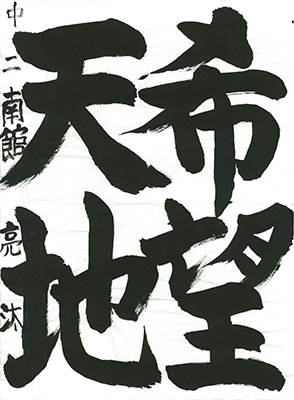 希望
天地
中二 南館 亮汰